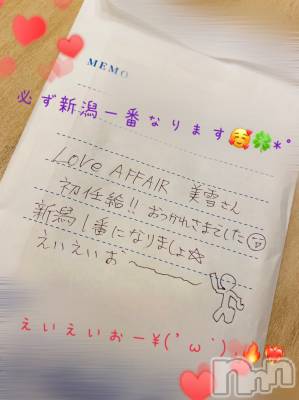 MEMO
必ず新潟一番なります🥰🍀*°
LOVE AFFAIR 美雪さん
初任給!! おつかれさまでした
新潟1番になりましょ☆
えいえいお〜
えいえいおー¥( 'ω' ).🔥👊
Nnn